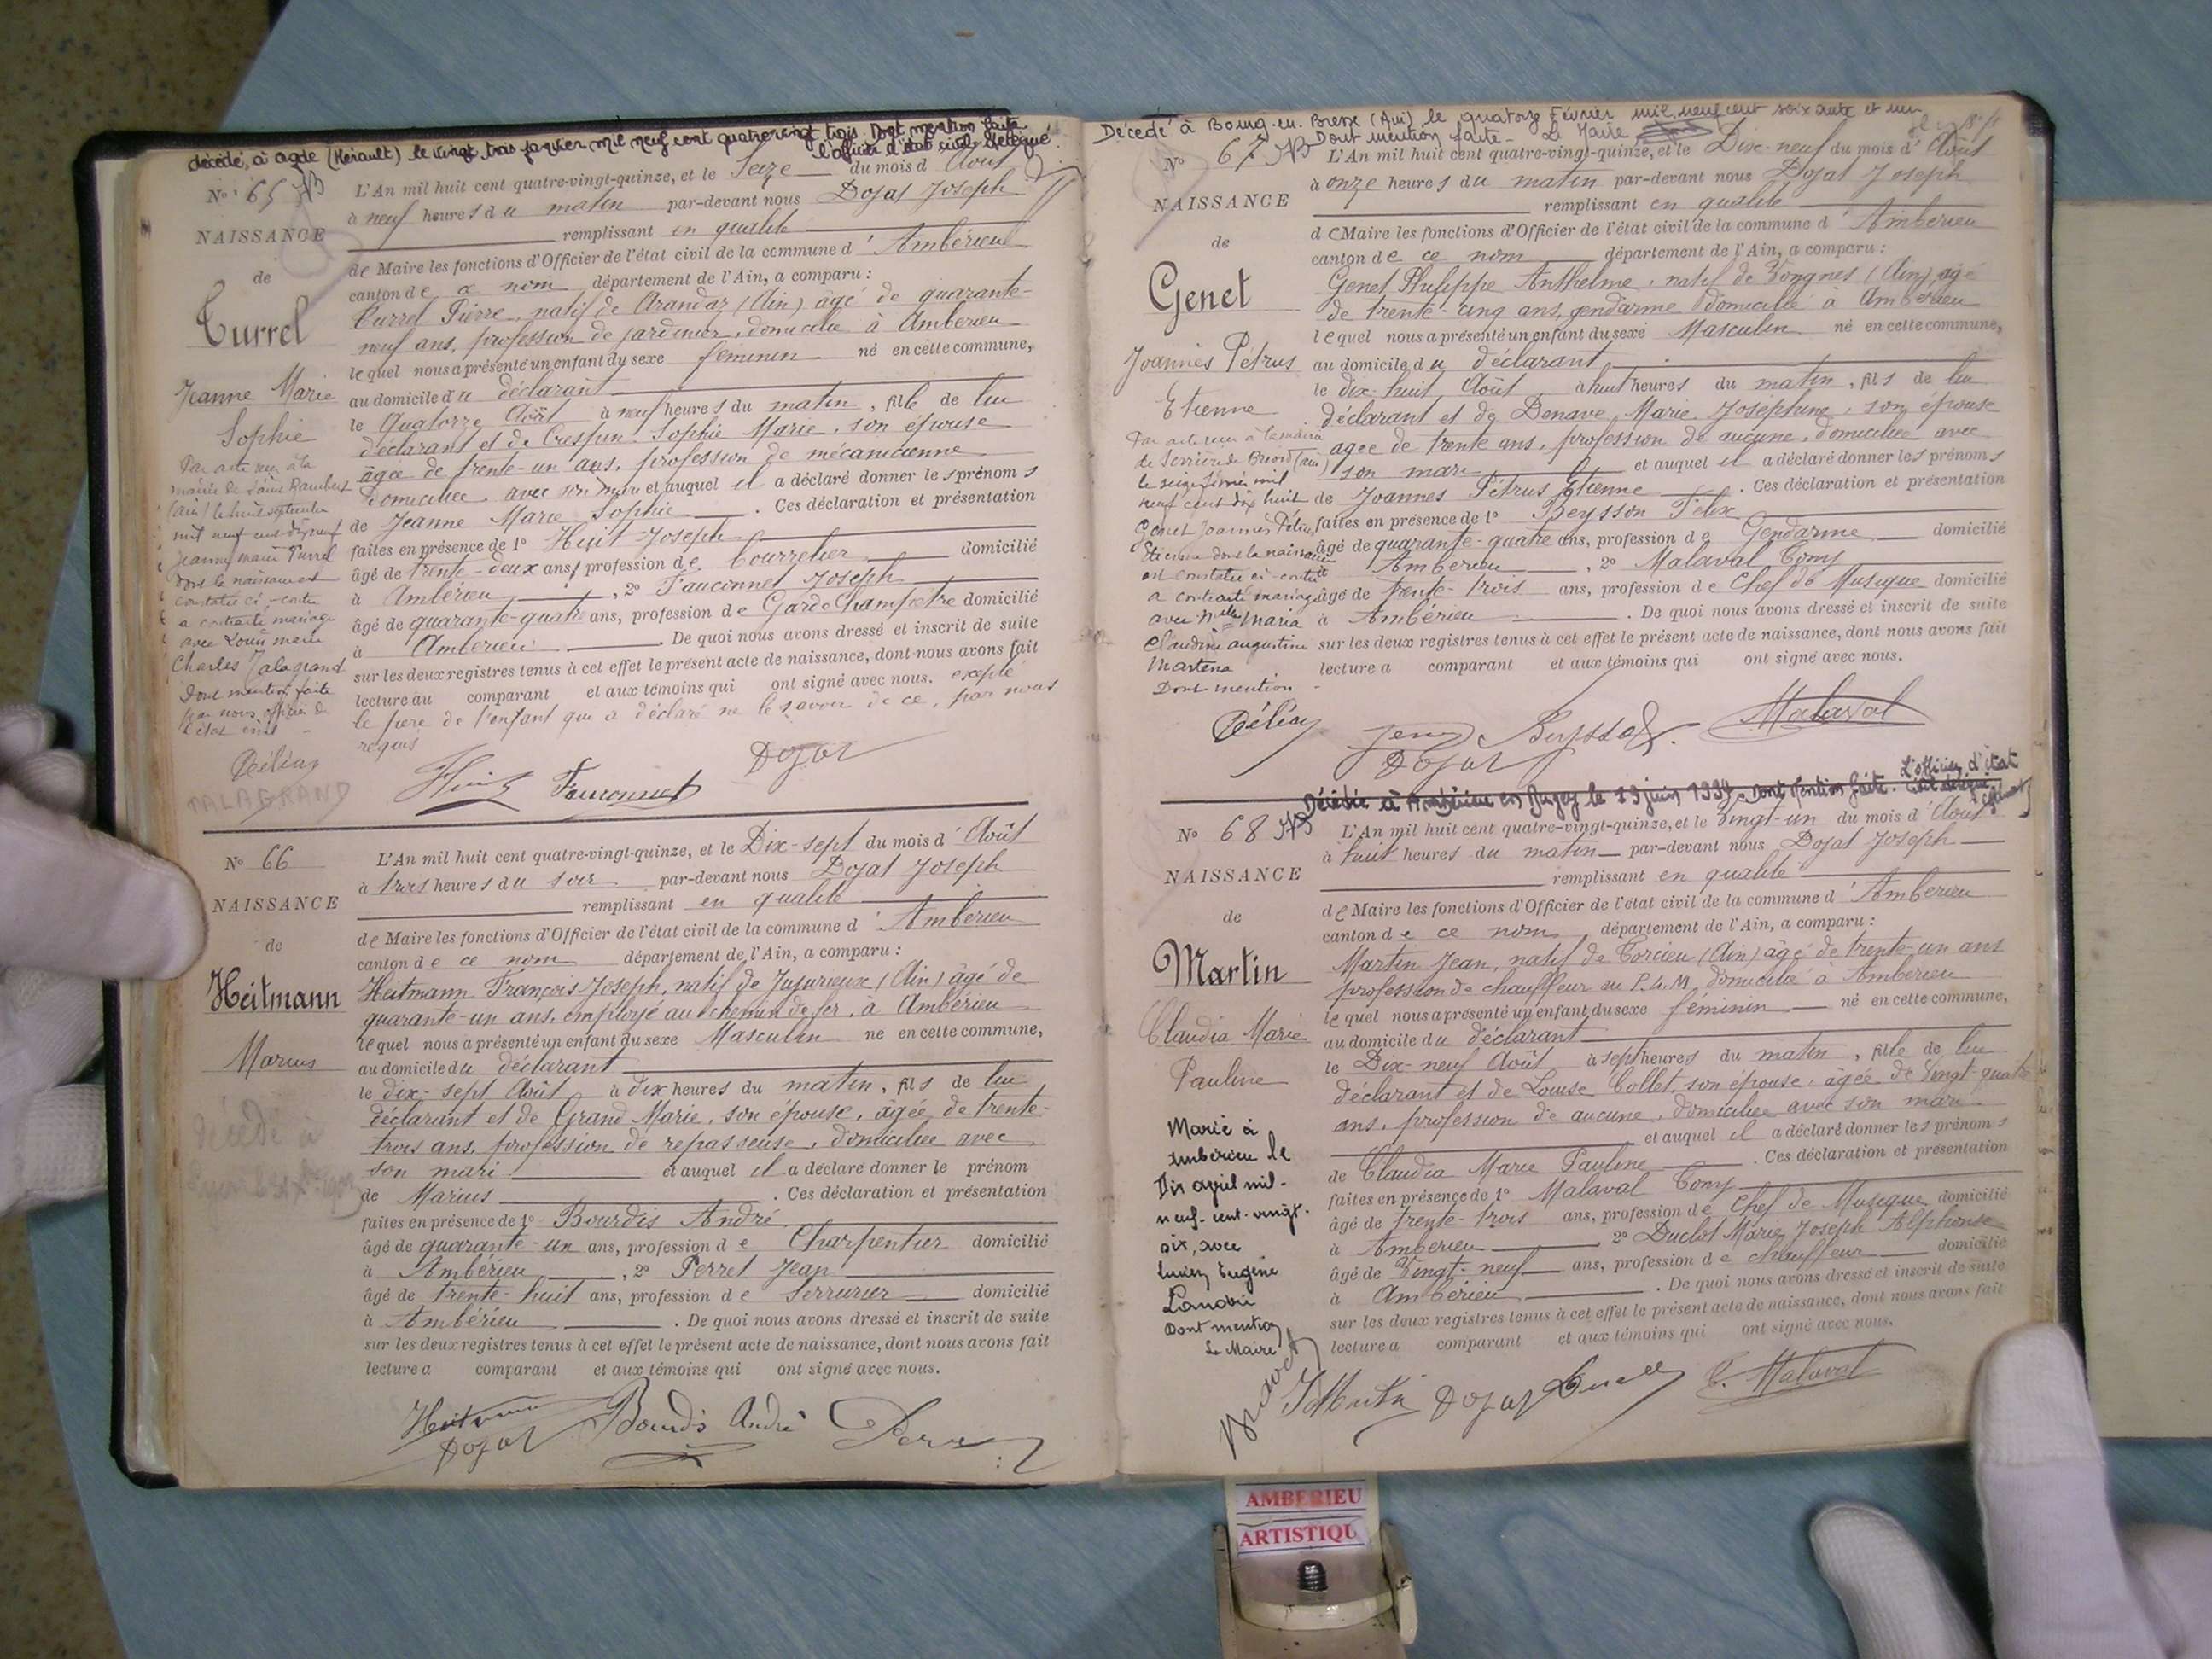 décédé, à Agde (Hérault) le vingt trois janvier mil neuf cent quatre vingt trois. Dont mention faite
l'officier d'état civil délégué.
No 65
NAISSANCE
de
Turrel
Jeanne Marie
Sophie
Par acte reçu à la
mairie de Saint Rambert
(ain) le huit septembre
mil neuf cent dix neuf
Jeanne Marie Turrel
dont la naissance est
constatée ci-contre
a contracté mariage
avec Louis Marie
Charles Talagrand
Dont mention faite
par nous officier de
l'état civil
TALAGRAND
L'An mil huit cent quatre-vingt-quinze, et le Seize du mois d'Août
à neuf heures du matin par-devant nous Dojat Joseph
remplissant en qualité
de Maire les fonctions d'Officier de l'état civil de la commune d'Ambérieu
canton de ce nom, département de l'Ain, a comparu :
Turrel Pierre, natif de Arandaz (Ain) âgé de quarante-
neuf ans, profession de jardinier, domicilié à Ambérieu
lequel nous a présenté un enfant du sexe féminin né en cette commune,
au domicile du déclarant
le Quatorze Août à neuf heures du matin, fille de lui
déclarant et de Crespin Sophie Marie, son épouse
âgée de trente-un ans, profession de mécanicienne
domiciliée avec son mari et auquel il a déclaré donner les prénoms
de Jeanne Marie Sophie. Ces déclaration et présentation
faites en présence de 1° Huit Joseph
âgé de trente-deux ans, profession de bourrelier domicilié
à Ambérieu, 2° Fauconnet Joseph
âgé de quarante-quatre ans, profession de Garde Champêtre domicilié
à Ambérieu. De quoi nous avons dressé et inscrit de suite
sur les deux registres tenus à cet effet le présent acte de naissance, dont nous avons fait
lecture au comparant et aux témoins qui ont signé avec nous. excepté
le père de l'enfant qui a déclaré ne le savoir de ce, par nous
requis
Huit Fauconnet Dojat
No 66
NAISSANCE
de
Heitmann
Marius
décédé à
L'An mil huit cent quatre-vingt-quinze, et le Dix-sept du mois d'Août
à trois heures du soir par-devant nous Dojat Joseph
remplissant en qualité
de Maire les fonctions d'Officier de l'état civil de la commune d'Ambérieu
canton de ce nom, département de l'Ain, a comparu :
Heitmann François Joseph, natif de Jujurieux (Ain) âgé de
quarante-un ans, employé au chemin de fer, à Ambérieu
lequel nous a présenté un enfant du sexe Masculin né en cette commune,
au domicile du déclarant
le dix-sept Août à dix heures du matin, fils de lui
déclarant et de Grand Marie, son épouse, âgée de trente-
trois ans, profession de repasseuse, domiciliée avec
son mari et auquel il a déclaré donner le prénom
de Marius. Ces déclaration et présentation
faites en présence de 1° Bourdis André
âgé de quarante-un ans, profession de Charpentier domicilié
à Ambérieu, 2° Perret Jean
âgé de trente-huit ans, profession de Serrurier domicilié
à Ambérieu. De quoi nous avons dressé et inscrit de suite
sur les deux registres tenus à cet effet le présent acte de naissance, dont nous avons fait
lecture a comparant et aux témoins qui ont signé avec nous.
Heitmann Bourdis André
Dojat
Décédé à Bourg-en-Bresse (Ain) le quatorze Février mil neuf cent soixante et un
Dont mention faite - Le Maire
No 67
NAISSANCE
de
Genet
Joannès Pétrus
Etienne
Par acte reçu à la mairie
de Serrières de Briord (ain)
le seize février mil
neuf cent dix huit
Genet Joannès Pétrus
Etienne dont la naissance
est constatée ci-contre
a contracté mariage
avec Melle Maria
Claudine Augustine
Dont mention
L'An mil huit cent quatre-vingt-quinze, et le Dix-neuf du mois d'Août
à onze heures du matin par-devant nous Dojat Joseph
remplissant en qualité
de Maire les fonctions d'Officier de l'état civil de la commune d'Ambérieu
canton de ce nom département de l'Ain, a comparu :
Genet Philippe Anthelme, natif de Vongnes (Ain), âgé
de trente-cinq ans, gendarme domicilié à Ambérieu
lequel nous a présenté un enfant du sexe Masculin né en cette commune,
au domicile du déclarant
le dix-huit Août à huit heures du matin, fils de lui
déclarant et de Denave Marie Joséphine, son épouse
âgée de trente ans, profession de aucune, domiciliée avec
son mari et auquel il a déclaré donner les prénoms
de Joannès Pétrus Etienne. Ces déclaration et présentation
faites en présence de 1° Beysson Félix
âgé de quarante-quatre ans, profession de Gendarme domicilié
à Ambérieu, 2° Malaval Tony
âgé de trente-trois ans, profession de Chef de Musique domicilié
à Ambérieu. De quoi nous avons dressé et inscrit de suite
sur les deux registres tenus à cet effet le présent acte de naissance, dont nous avons fait
lecture a comparant et aux témoins qui ont signé avec nous.
Beysson Malaval
Dojat
Décédée à Ambérieu en Bugey le 13 juin 1984 Dont mention faite. L'officier d'état
civil délégué
No 68
NAISSANCE
de
Martin
Claudia Marie
Pauline
Marié à
Ambérieu le
Dix avril mil-
neuf-cent-vingt-
six, avec
Lucien Eugène
Dont mention
Le Maire
L'An mil huit cent quatre-vingt-quinze, et le vingt-un du mois d'Août
à huit heures du matin par-devant nous Dojat Joseph
remplissant en qualité
de Maire les fonctions d'Officier de l'état civil de la commune d'Ambérieu
canton de ce nom, département de l'Ain, a comparu :
Martin Jean, natif de Torcieu (Ain) âgé de trente-un ans
profession de chauffeur au P.L.M domicilié à Ambérieu
lequel nous a présenté un enfant du sexe féminin né en cette commune,
au domicile du déclarant
le Dix-neuf Août à sept heures du matin, fille de lui
déclarant et de Louise Collet, son épouse, âgée de vingt quatre
ans, profession de aucune, domiciliée avec son mari
et auquel il a déclaré donner les prénoms
de Claudia Marie Pauline. Ces déclaration et présentation
faites en présence de 1° Malaval Tony
âgé de trente-trois ans, profession de Chef de Musique domicilié
à Ambérieu 2° Duclot Marie Joseph Alphonse
âgé de Vingt-neuf ans, profession de chauffeur domicilié
à Ambérieu. De quoi nous avons dressé et inscrit de suite
sur les deux registres tenus à cet effet le présent acte de naissance, dont nous avons fait
lecture a comparant et aux témoins qui ont signé avec nous.
J Martin Dojat T. Malaval
AMBERIEU
ARTISTIQU